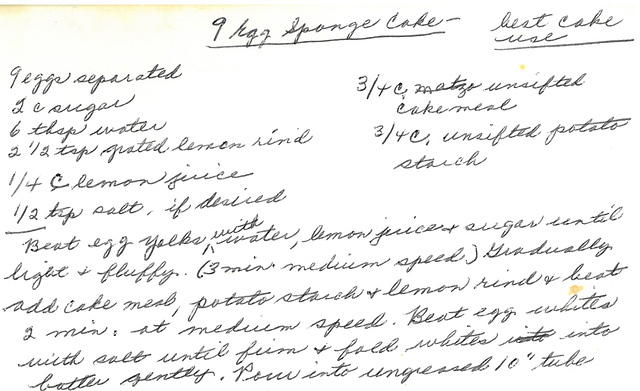 9 Egg Sponge Cake - best cake
use
9 eggs separated
2 c sugar
6 tbsp water
2 1/2 tsp grated lemon rind
1/4 C lemon juice
1/2 tsp salt, if desired
3/4 C, matzo unsifted
cake meal
3/4 C. unsifted potato
starch
Beat egg yolks with water, lemon juice & sugar until
light & fluffy. (3 min. medium speed.) Gradually
add cake meal, potato starch & lemon rind & beat
2 min. at medium speed. Beat egg whites
with salt until firm & fold whites into into
batter gently. Pour into ungreased 10" tube